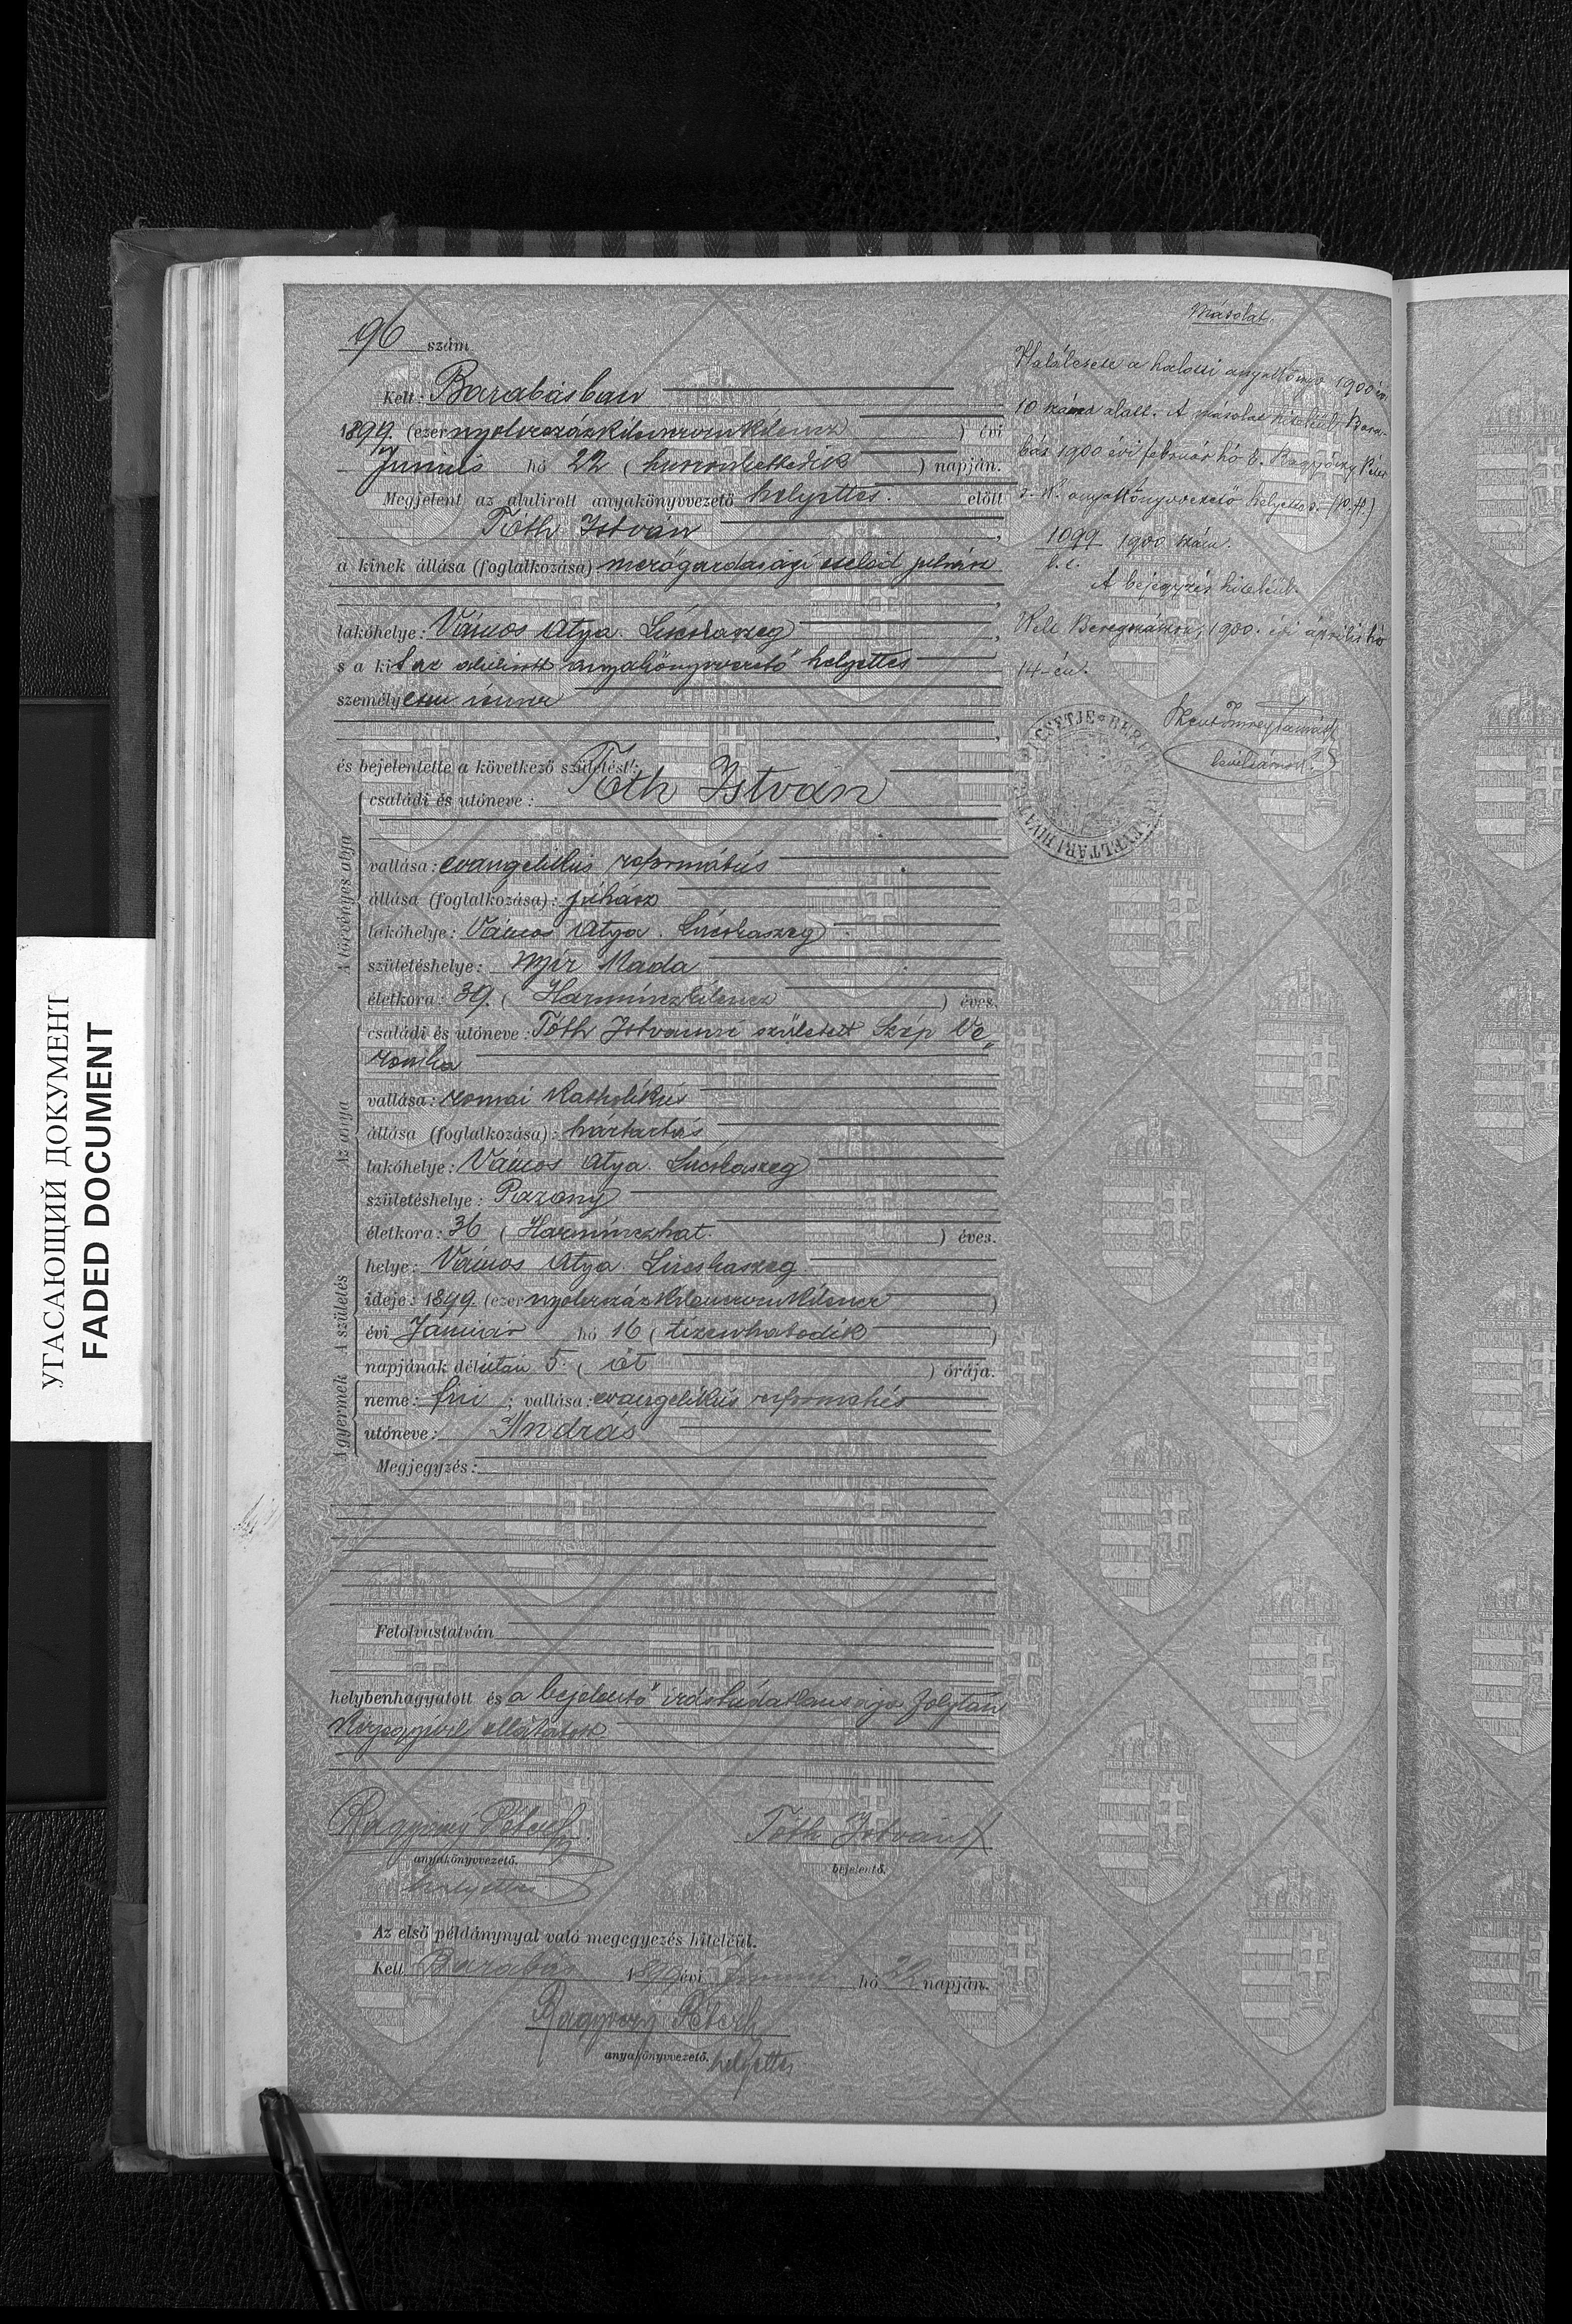 УГАСАЮЩИЙ ДОКУМЕНТ
FADED DOCUMENT
96 szám
Kelt: Barabásban
1899. (ezernyolczszázkilenczvenkilencz) évi
Junius hó 22 (huszonkettedik) napján.
Megjelent az alulirott anyakönyvvezető helyettes. előtt
Tóth István,
a kinek állása (foglalkozása) mezőgazdasági cseléd juhász,
lakóhelye: Vámos Atya. Lúcskaszeg,
s a kit az alulirott anyakönyvvezető helyettes
személyesen ismer,
és bejelentette a következő születést:
A törvényes apja
családi és utóneve: Tóth István
vallása: evangelikus református
állása (foglalkozása): juhász
lakóhelye: Vámos Atya. Lúcskaszeg
születéshelye: Nyir Mada
életkora: 39. (Harminczkilencz) éves.
Az anya
családi és utóneve: Tóth Istvánné született Szép Ve„
ronika
vallása: romai katholikus
állása (foglalkozása): háztartás
lakóhelye: Vámos Atya. Lucskaszeg
születéshelye: Pazony
életkora: 36 (Harminczhat.) éves.
A születés
helye: Vámos Atya. Lúcskaszeg.
ideje: 1899. (ezernyolczszázkilenczvenkilencz)
évi Január hó 16 (tizenhatodik)
napjának délután 5. (öt) órája.
A gyermek
neme: fiú; vallása: evangelikus református
utóneve: András
Megjegyzés:
Felolvastatván
helybenhagyatott és a bejelentő irástudatlansága folytán
kézjegyével ellátatott.
Péter
anyakönyvvezető.
helyettes
Tóth István X
bejelentő.
Az első példánynyal való megegyezés hiteléül.
Kelt Barabás 1899 évi junius hó 22 napján.
Péter
anyakönyvvezető. helyettes
Másolat.
Halálesete a halotti anyakönyv 1900 évi
10 száma alatt. A másolat hiteléül Bara-
bás 1900 évi február hó Péter
s. k. anyakönyvvezető helyettes. (P. H.)
1099 1900 szám.
A bejegyzés hiteléül.
Kelt Beregszászon, 1900. évi április hó
14-én.
levéltárnok